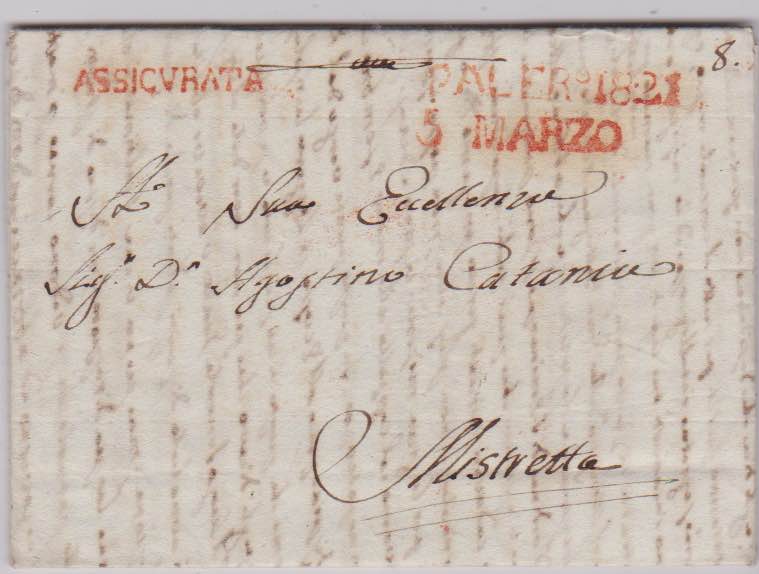 8.
ASSICVRATA
PALER.º 1821
5 MARZO
A Sua Eccellenza
Sig.r D.n Agostino Catania
Mistretta